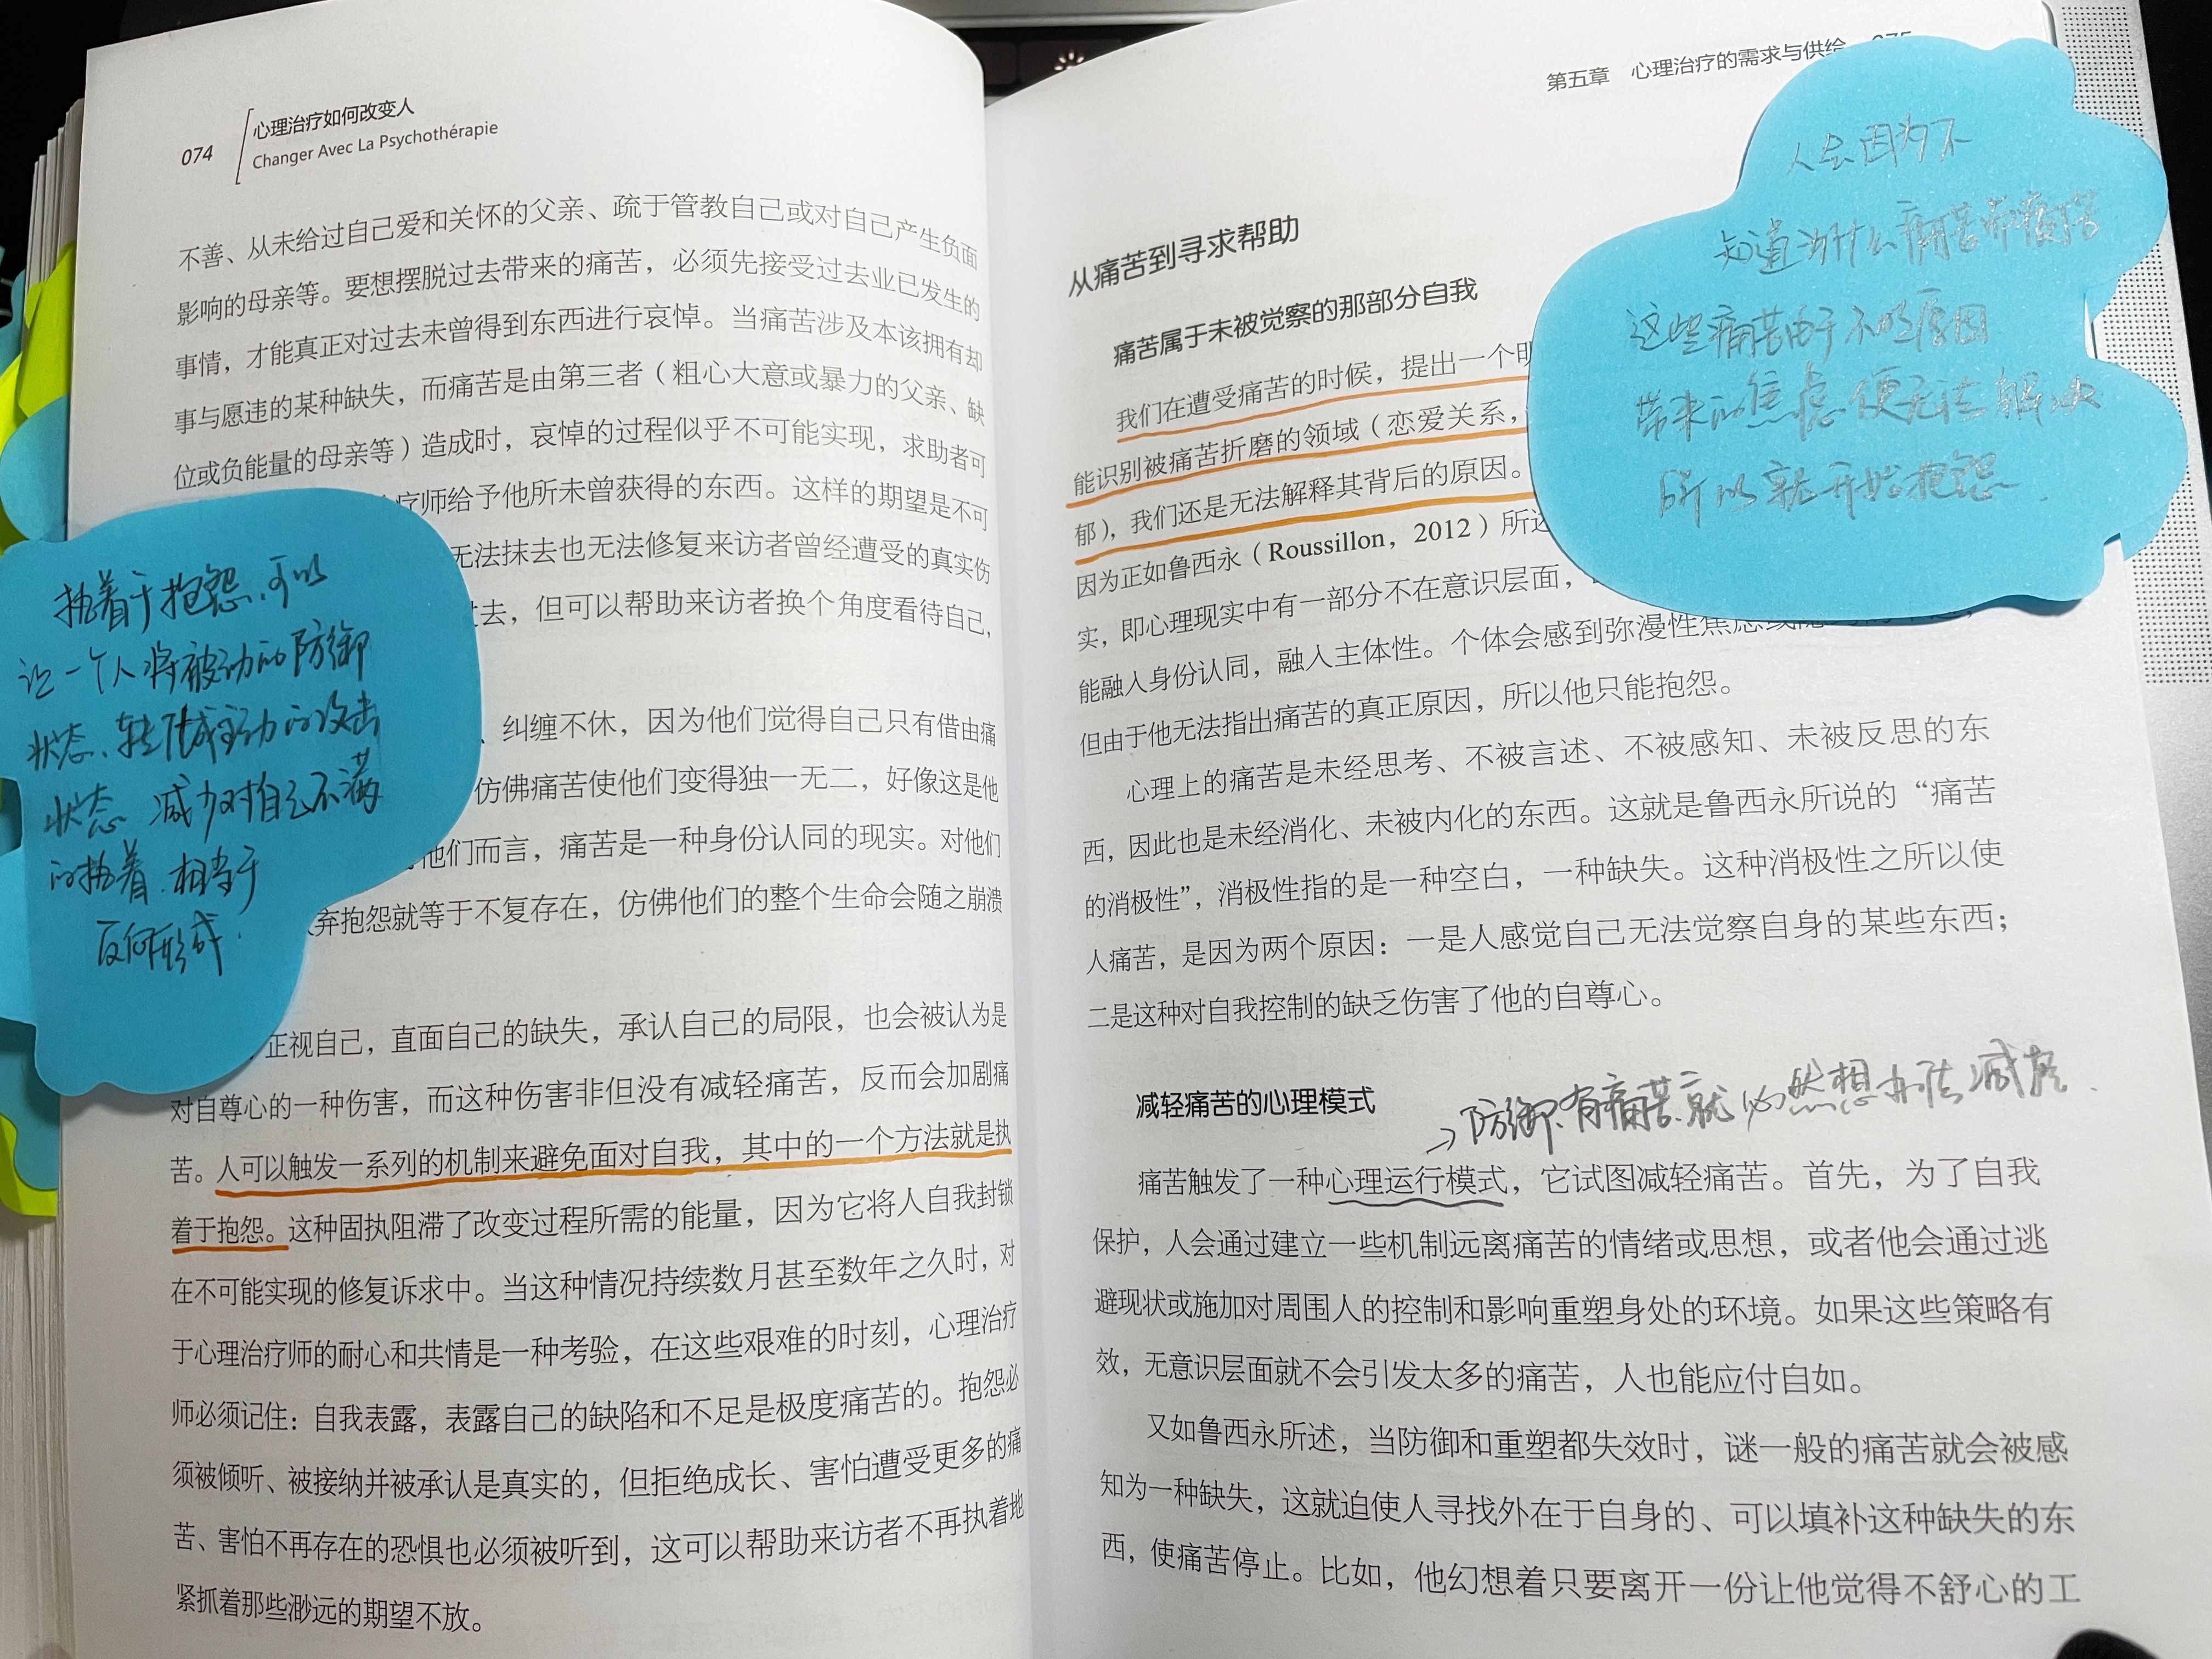 074
心理治疗如何改变人
Changer Avec La Psychothérapie
不善、从未给过自己爱和关怀的父亲、疏于管教自己或对自己产生负面
影响的母亲等。要想摆脱过去带来的痛苦，必须先接受过去业已发生的
事情，才能真正对过去未曾得到东西进行哀悼。当痛苦涉及本该拥有却
事与愿违的某种缺失，而痛苦是由第三者（粗心大意或暴力的父亲、缺
位或负能量的母亲等）造成时，哀悼的过程似乎不可能实现，求助者可
疗师给予他所未曾获得的东西。这样的期望是不可
无法抹去也无法修复来访者曾经遭受的真实伤
过去，但可以帮助来访者换个角度看待自己，
、纠缠不休，因为他们觉得自己只有借由痛
仿佛痛苦使他们变得独一无二，好像这是他
他们而言，痛苦是一种身份认同的现实。对他们
弃抱怨就等于不复存在，仿佛他们的整个生命会随之崩溃
，正视自己，直面自己的缺失，承认自己的局限，也会被认为是
对自尊心的一种伤害，而这种伤害非但没有减轻痛苦，反而会加剧痛
苦。人可以触发一系列的机制来避免面对自我，其中的一个方法就是执
着于抱怨。这种固执阻滞了改变过程所需的能量，因为它将人自我封锁
在不可能实现的修复诉求中。当这种情况持续数月甚至数年之久时，对
于心理治疗师的耐心和共情是一种考验，在这些艰难的时刻，心理治疗
师必须记住：自我表露，表露自己的缺陷和不足是极度痛苦的。抱怨必
须被倾听、被接纳并被承认是真实的，但拒绝成长、害怕遭受更多的痛
苦、害怕不再存在的恐惧也必须被听到，这可以帮助来访者不再执着地
紧抓着那些渺远的期望不放。
执着于抱怨、可以
让一个人将被动的防御
状态、转化成主动的攻击
状态 减少对自己不满
的执着、相当于
反向形成.
第五章 心理治疗的需求与供给 075
从痛苦到寻求帮助
痛苦属于未被觉察的那部分自我
我们在遭受痛苦的时候，提出一个明
能识别被痛苦折磨的领域（恋爱关系，
郁），我们还是无法解释其背后的原因。
因为正如鲁西永（Roussillon，2012）所述
实，即心理现实中有一部分不在意识层面，
能融入身份认同，融入主体性。个体会感到弥漫性焦虑或
但由于他无法指出痛苦的真正原因，所以他只能抱怨。
心理上的痛苦是未经思考、不被言述、不被感知、未被反思的东
西，因此也是未经消化、未被内化的东西。这就是鲁西永所说的“痛苦
的消极性”，消极性指的是一种空白，一种缺失。这种消极性之所以使
人痛苦，是因为两个原因：一是人感觉自己无法觉察自身的某些东西；
二是这种对自我控制的缺乏伤害了他的自尊心。
减轻痛苦的心理模式
→防御、有痛苦、就必然想办法减轻.
痛苦触发了一种心理运行模式，它试图减轻痛苦。首先，为了自我
保护，人会通过建立一些机制远离痛苦的情绪或思想，或者他会通过逃
避现状或施加对周围人的控制和影响重塑身处的环境。如果这些策略有
效，无意识层面就不会引发太多的痛苦，人也能应付自如。
又如鲁西永所述，当防御和重塑都失效时，谜一般的痛苦就会被感
知为一种缺失，这就迫使人寻找外在于自身的、可以填补这种缺失的东
西，使痛苦停止。比如，他幻想着只要离开一份让他觉得不舒心的工
人会因为不
知道为什么痛苦而痛苦
这些痛苦由于不明原因
带来的焦虑便无法解决
所以就开始抱怨.